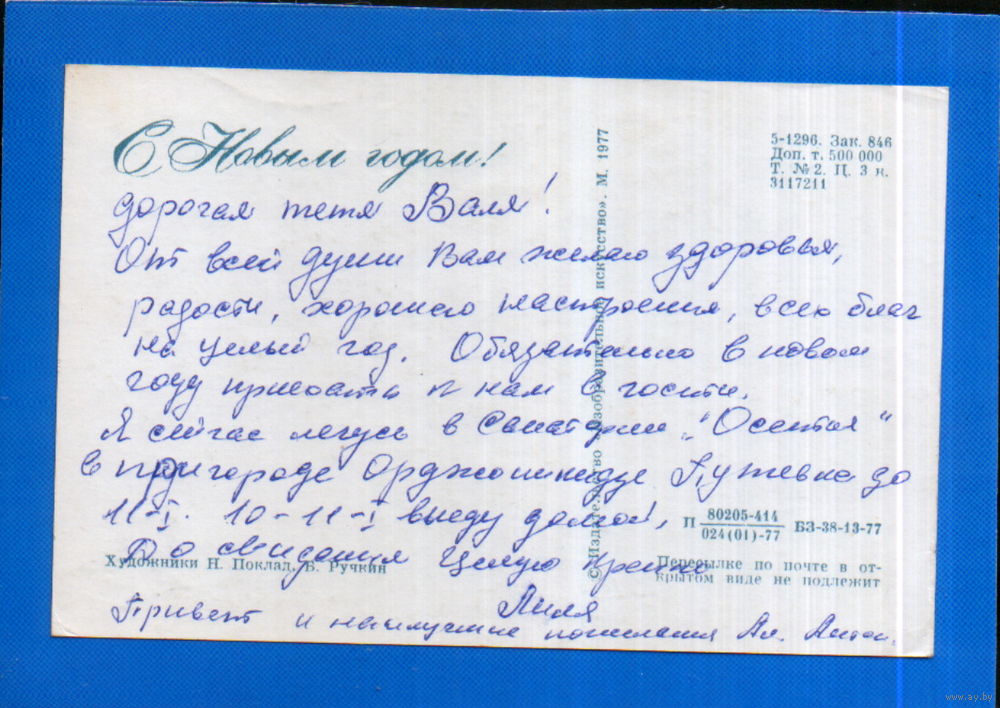 С Новым годом!
дорогая тетя Валя!
От всей души Вам желаю здоровья,
радости, хорошего настроения, всех благ
на целый год. Обязательно в новом
году приехать к нам в гости.
Я сейчас лечусь в санатории „Осетия"
в пригороде Орджоникидзе Путевка до
11-I. 10-11-I выеду домой,
До свидания Целую крепко
Лиля
Привет и наилучшие пожелания Ал. Антон.
Художники Н. Поклад, Б. Ручкин
© «Издательство «Изобразительное искусство». М. 1977
5-1296. Зак. 846
Доп. т. 500 000
Т. № 2. Ц. 3 к.
3117211
П 80205-414
024(01)-77 БЗ-38-13-77
Пересылке по почте в от-
крытом виде не подлежит
www.ay.by